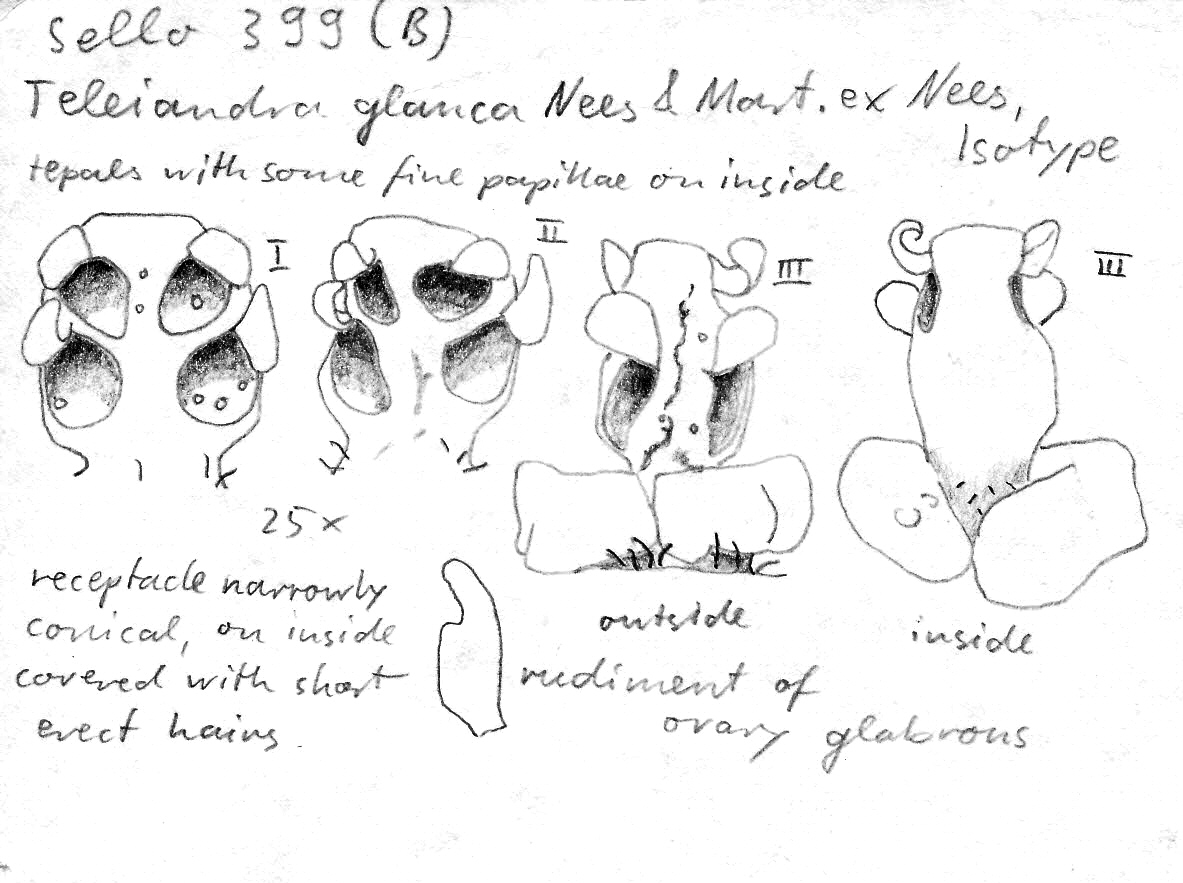 Sello 399 (B)
Teleiandra glauca Nees & Mart. ex Nees,
Isotype
tepals with some fine papillae on inside
I
II
III
III
25 x
receptacle narrowly
conical, on inside
covered with short
erect hairs
outside
inside
rudiment of
ovary glabrous